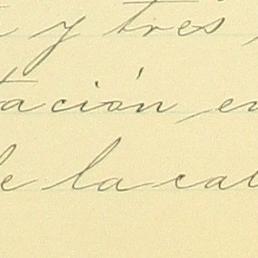 y tres
tación en
de la cal